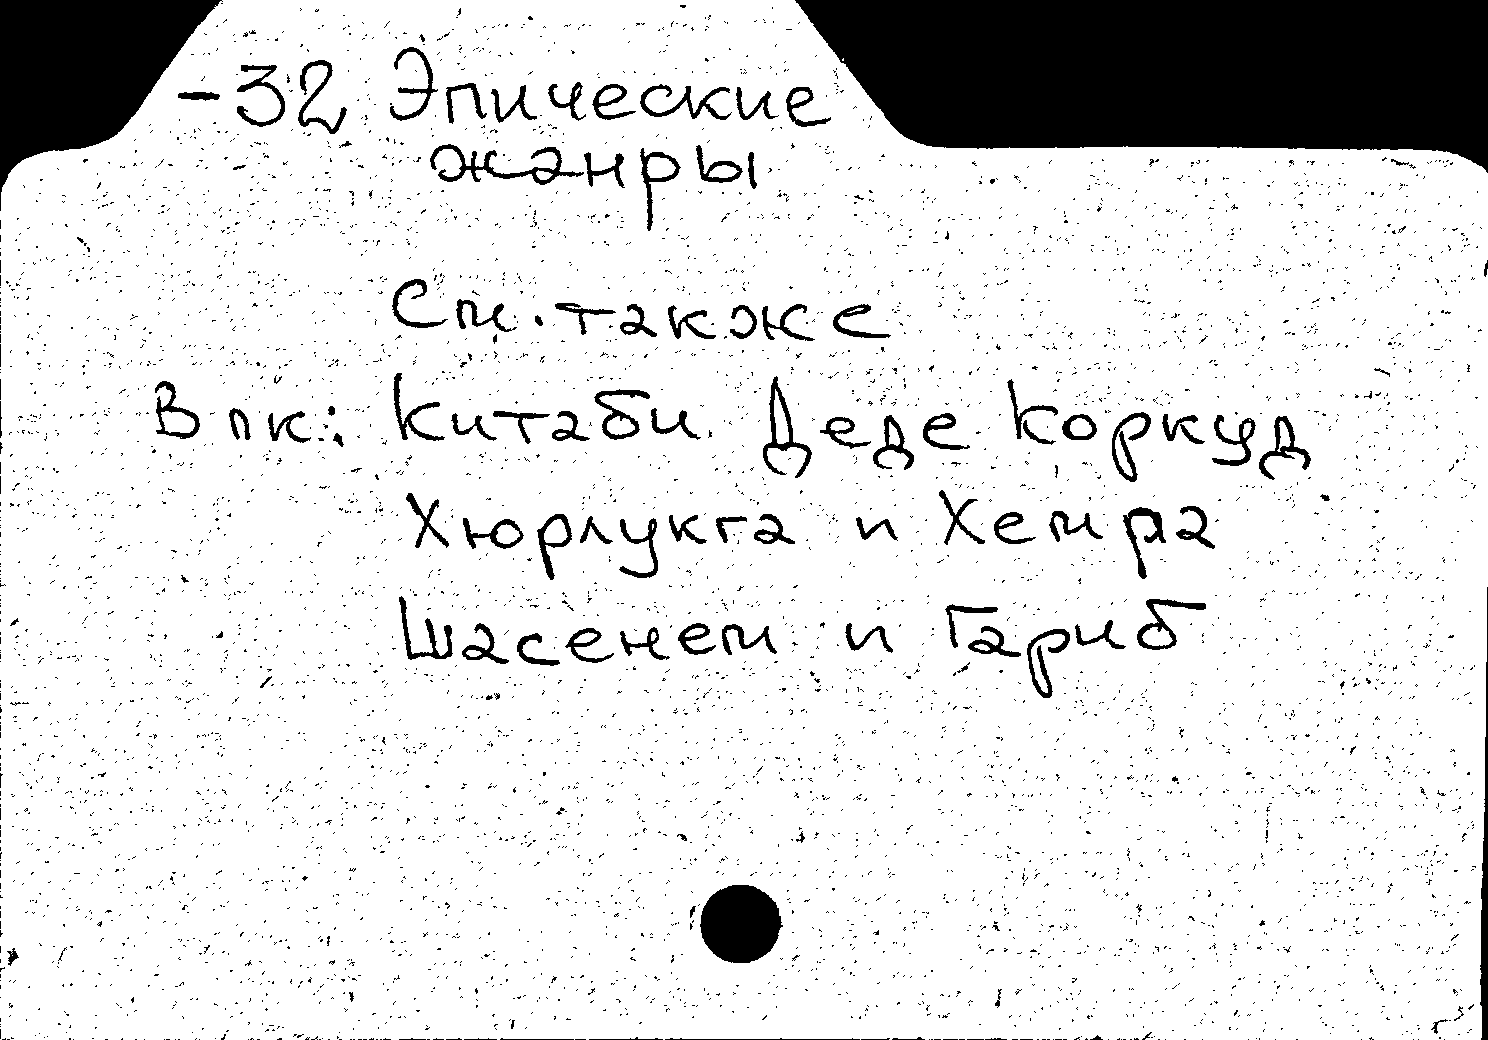 -32 Эпические
жанры
См. также
В пк: Китаби Деде Коркуд
Хюрлукга и Хемра
Шасенем и Гариб